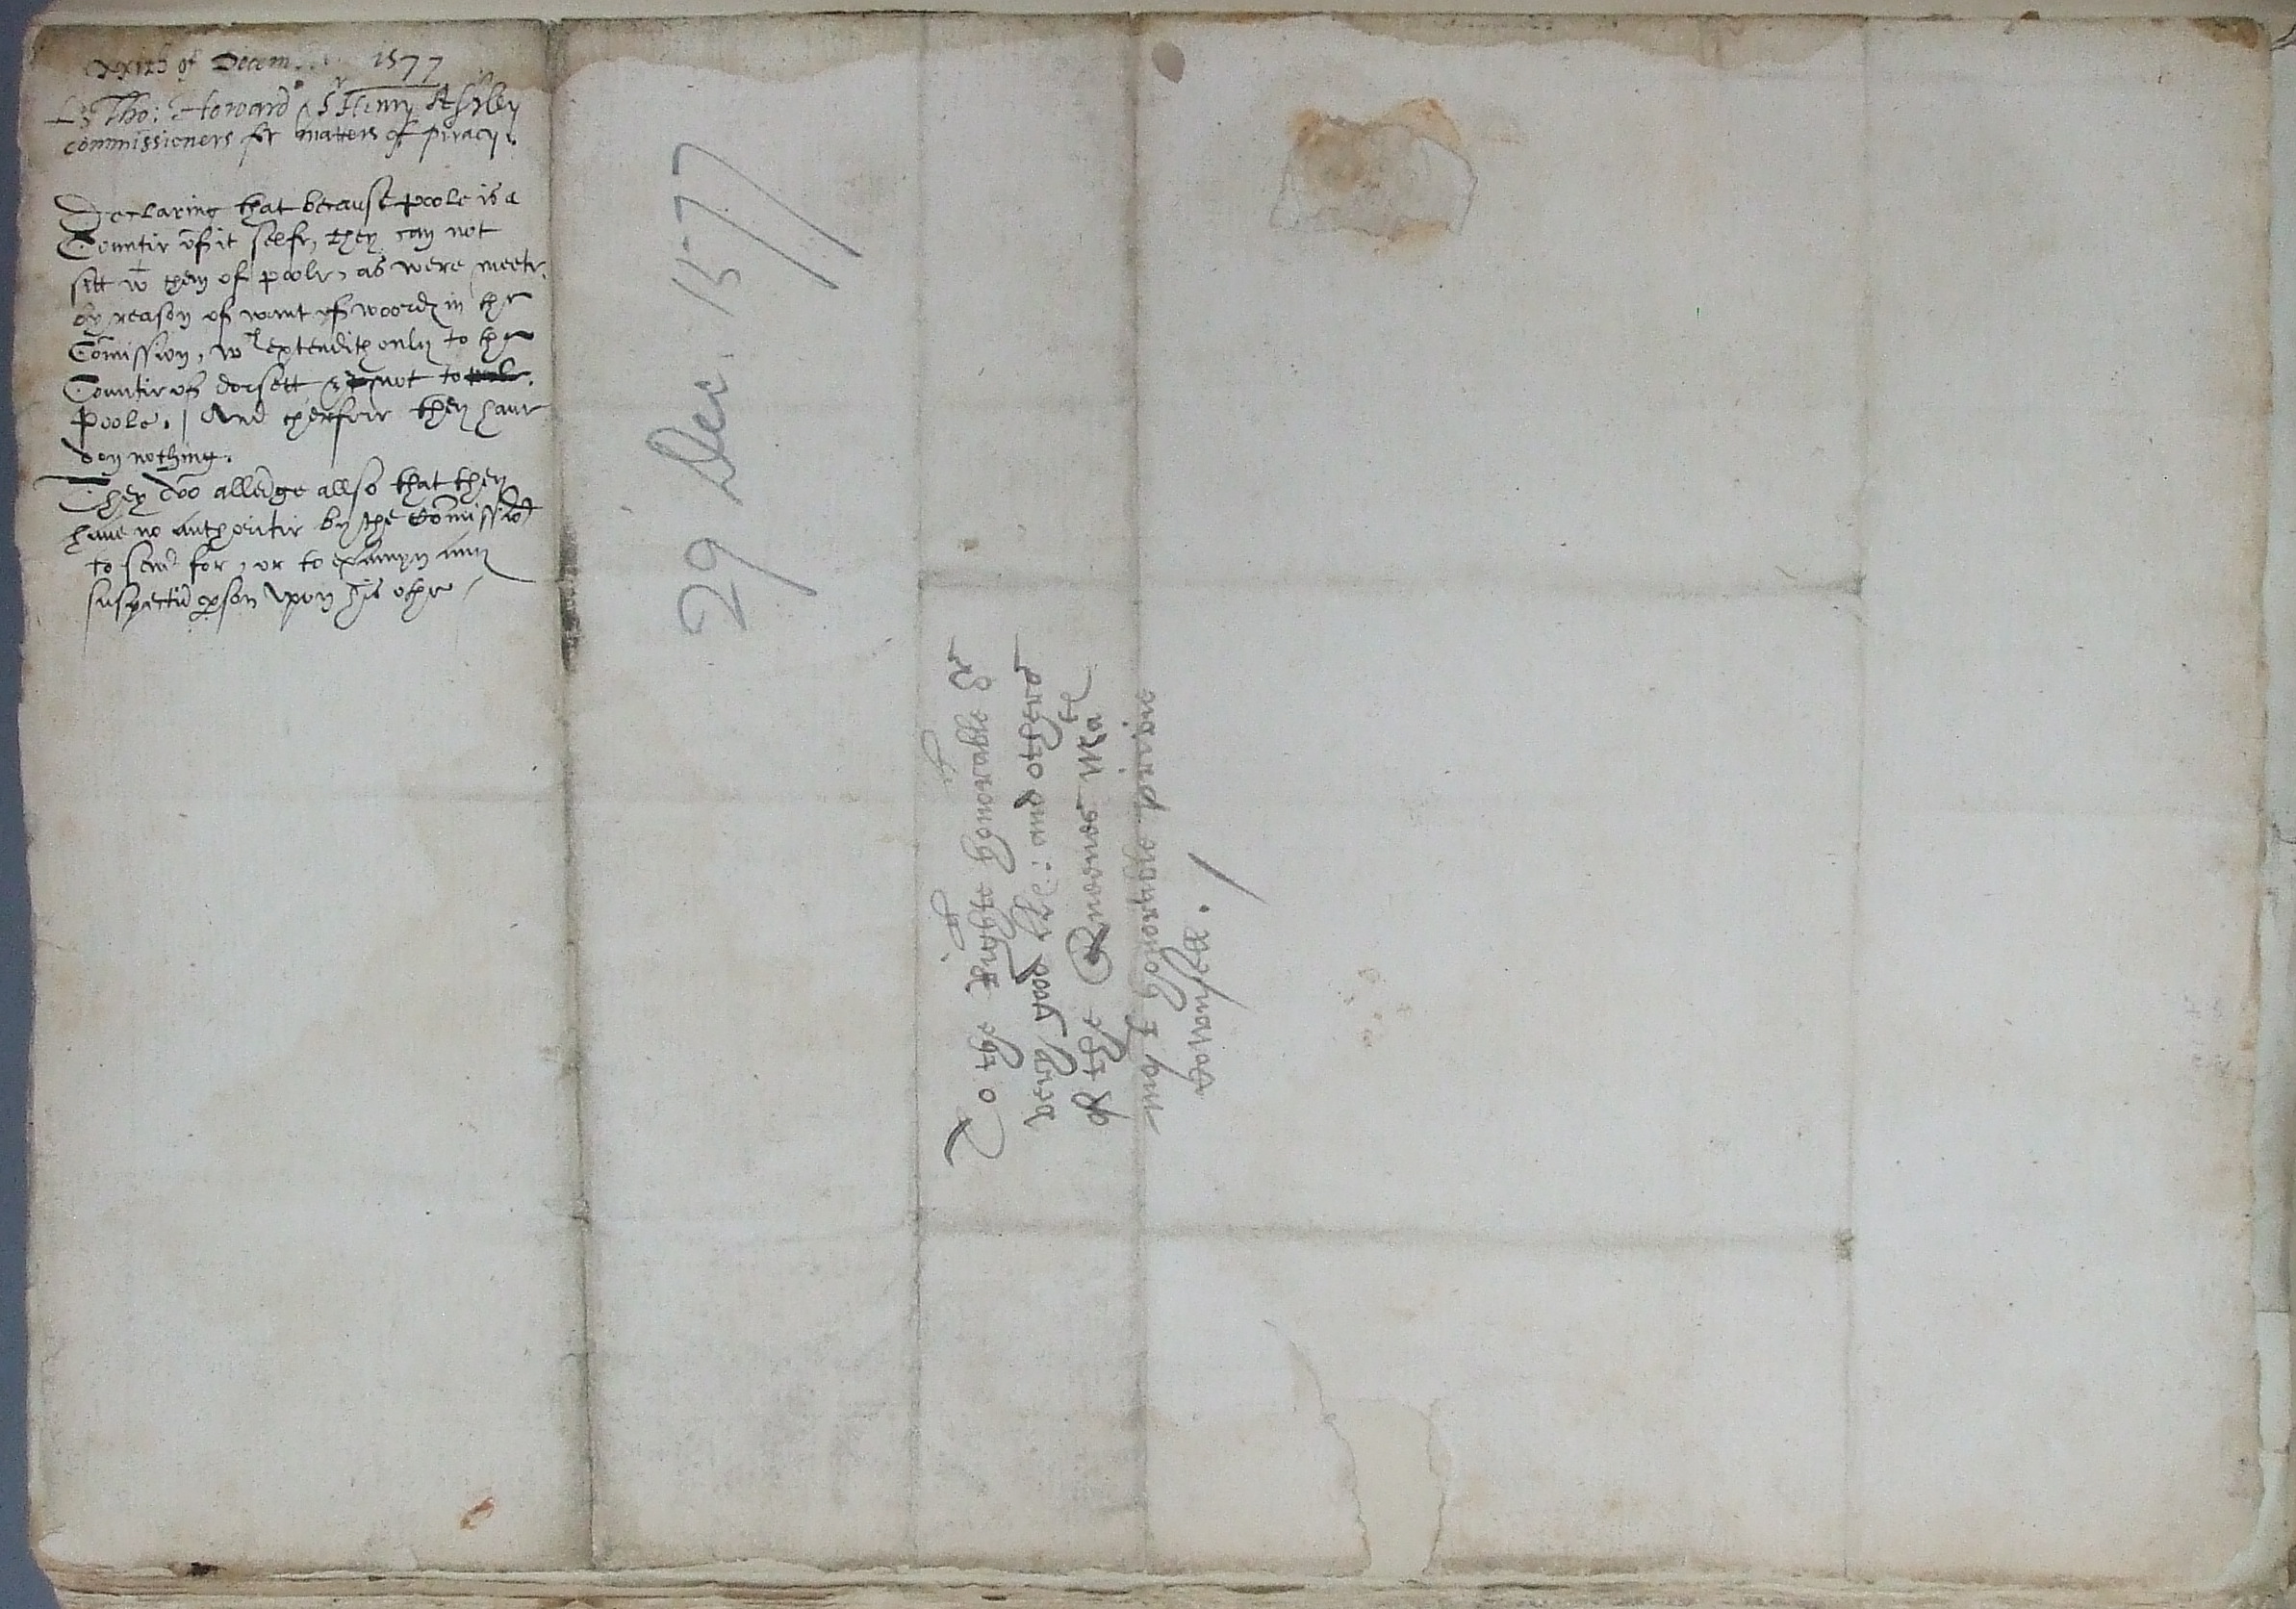 xxixth of Decem... 1577
Ls Tho: Howard Sr Henry Ashley
commissioners for matters of piracy.
Declaring that because Poole is a
Countie of it selfe, they can not
sitt wt them of Poole, as were meete,
by reason of want of woords in the
Comission, wch extendith only to the
Countie of dorsett & not to
Poole. / And therfore they have
don nothing.
They doo alledge allso that they
have no authoritie by the Comission
to send for, or to examyn any
suspected pson upon his othe /
29 Dec. 1577
To the Right honorable or
very good LLs: and others
of the Queenes Matl
most honorable privie
Counsell. /